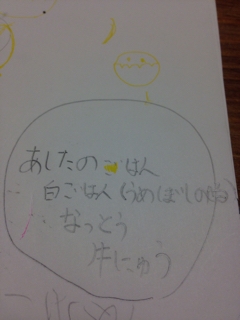 あしたのごはん
白ごはん(うめぼしのせる)
なっとう
牛にゅう